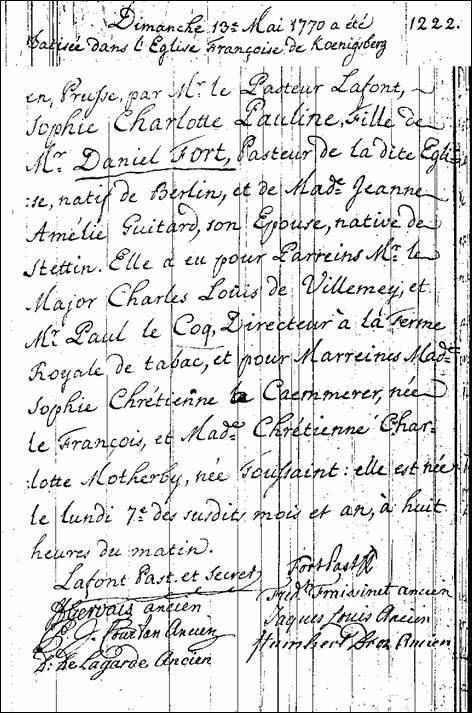 Dimanche 13e Mai 1770 a été 1222.
batisée dans l'Eglise Françoise de Koenigsberg
en, Prusse, par Mr. le Pasteur Lafont,
Sophie Charlotte Pauline, Fille de
Mr. Daniel Fort, Pasteur de la dite Egli-
:se, natif de Berlin, et de Made. Jeanne
Amélie Guitard, son Epouse, native de
Stettin. Elle a eu pour Parreins Mr. le
Major Charles Louis de Villemey, et
Mr. Paul le Coq, Directeur à la Ferme
Royale de tabac, et pour Marreines Made.
Sophie Chrétienne Caemmerer, née
le François, et Made. Chrétienne Char-
:lotte Motherby, née Toussaint: elle est née
le lundi 7e. des susdits mois et an, à huit
heures du matin.
Lafont Past. et Secret. Fort Past.
Gervais ancien Fred. Froissinet ancien
Fourtan Ancien Jaques Louis Ancien
D: De Lagarde Ancien Humbert Droz Ancien